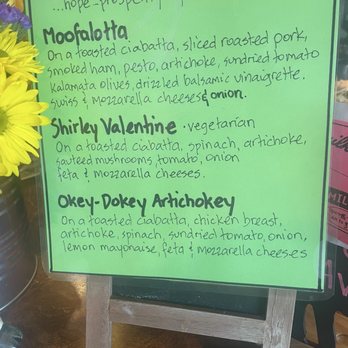 ...hope-prosperity
Moofalotta
On a toasted ciabatta, sliced roasted pork,
smoked ham, pesto, artichoke, sundried tomato
kalamata olives, drizzled balsamic vinaigrette.
swiss & mozzarella cheeses & onion.
Shirley Valentine · vegetarian
On a toasted ciabatta, spinach, artichoke,
sauteed mushrooms, tomato, onion
feta & mozzarella cheeses.
Okey-Dokey Artichokey
On a toasted ciabatta, chicken breast,
artichoke, spinach, sundried tomato, onion,
lemon mayonaise, feta & mozzarella cheeses